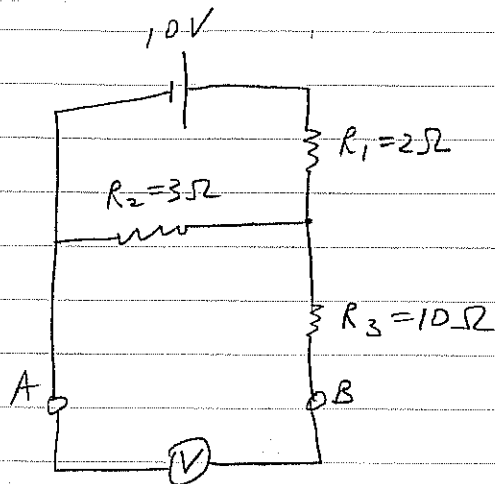 10V
R₁=2Ω
R₂=3Ω
R₃=10Ω
A
B
V